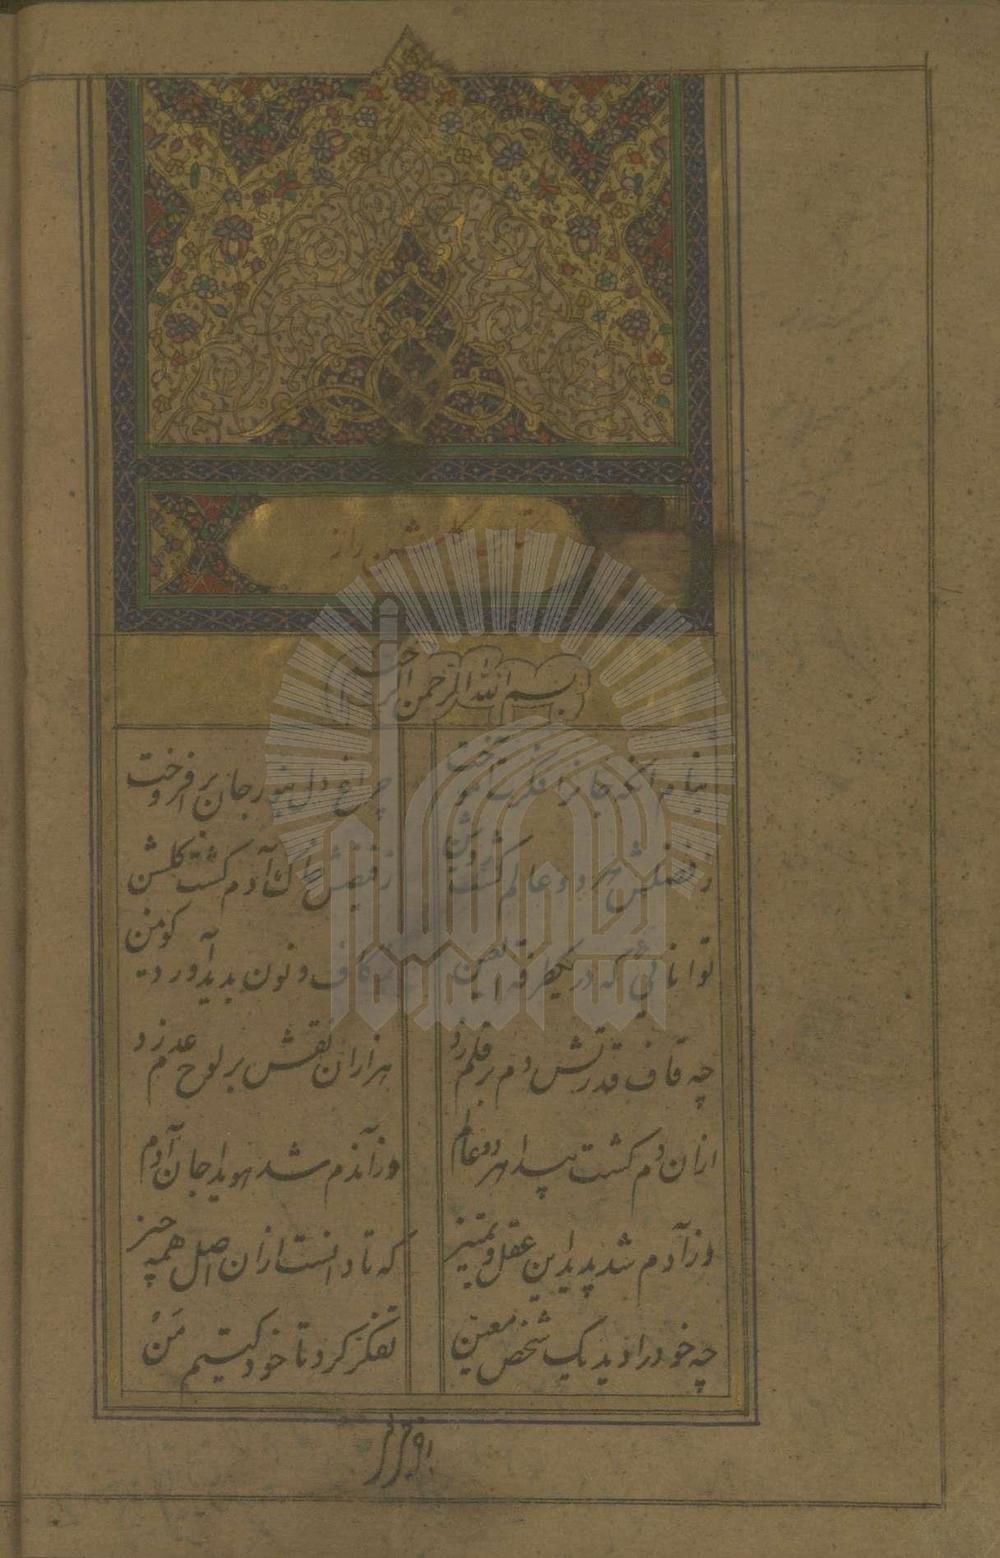 کتاب گلشن راز
بسم الله الرحمن الرحیم
بنام آنکه جانرا فکرت آموخت چراغ دل بنور جان برافروخت
ز فضلش هر دو عالم کشت روشن ز فیضش خاک آدم کشت کلشن
توانائی که در یکطرفة العین ز کاف و نون بدید آورد کونین
چه قاف قدرتش دم بر قلم زد هزاران نقش بر لوح عدم زد
ازان دم کشت پیدا هر دو عالم وز آندم شد هویدا جان آدم
در آدم شد پدید این عقل و تمیز که تا دانست ازان اصل همه چیز
چه خود را دید یک شخص معین تفکر کرد تا خود کیستم من